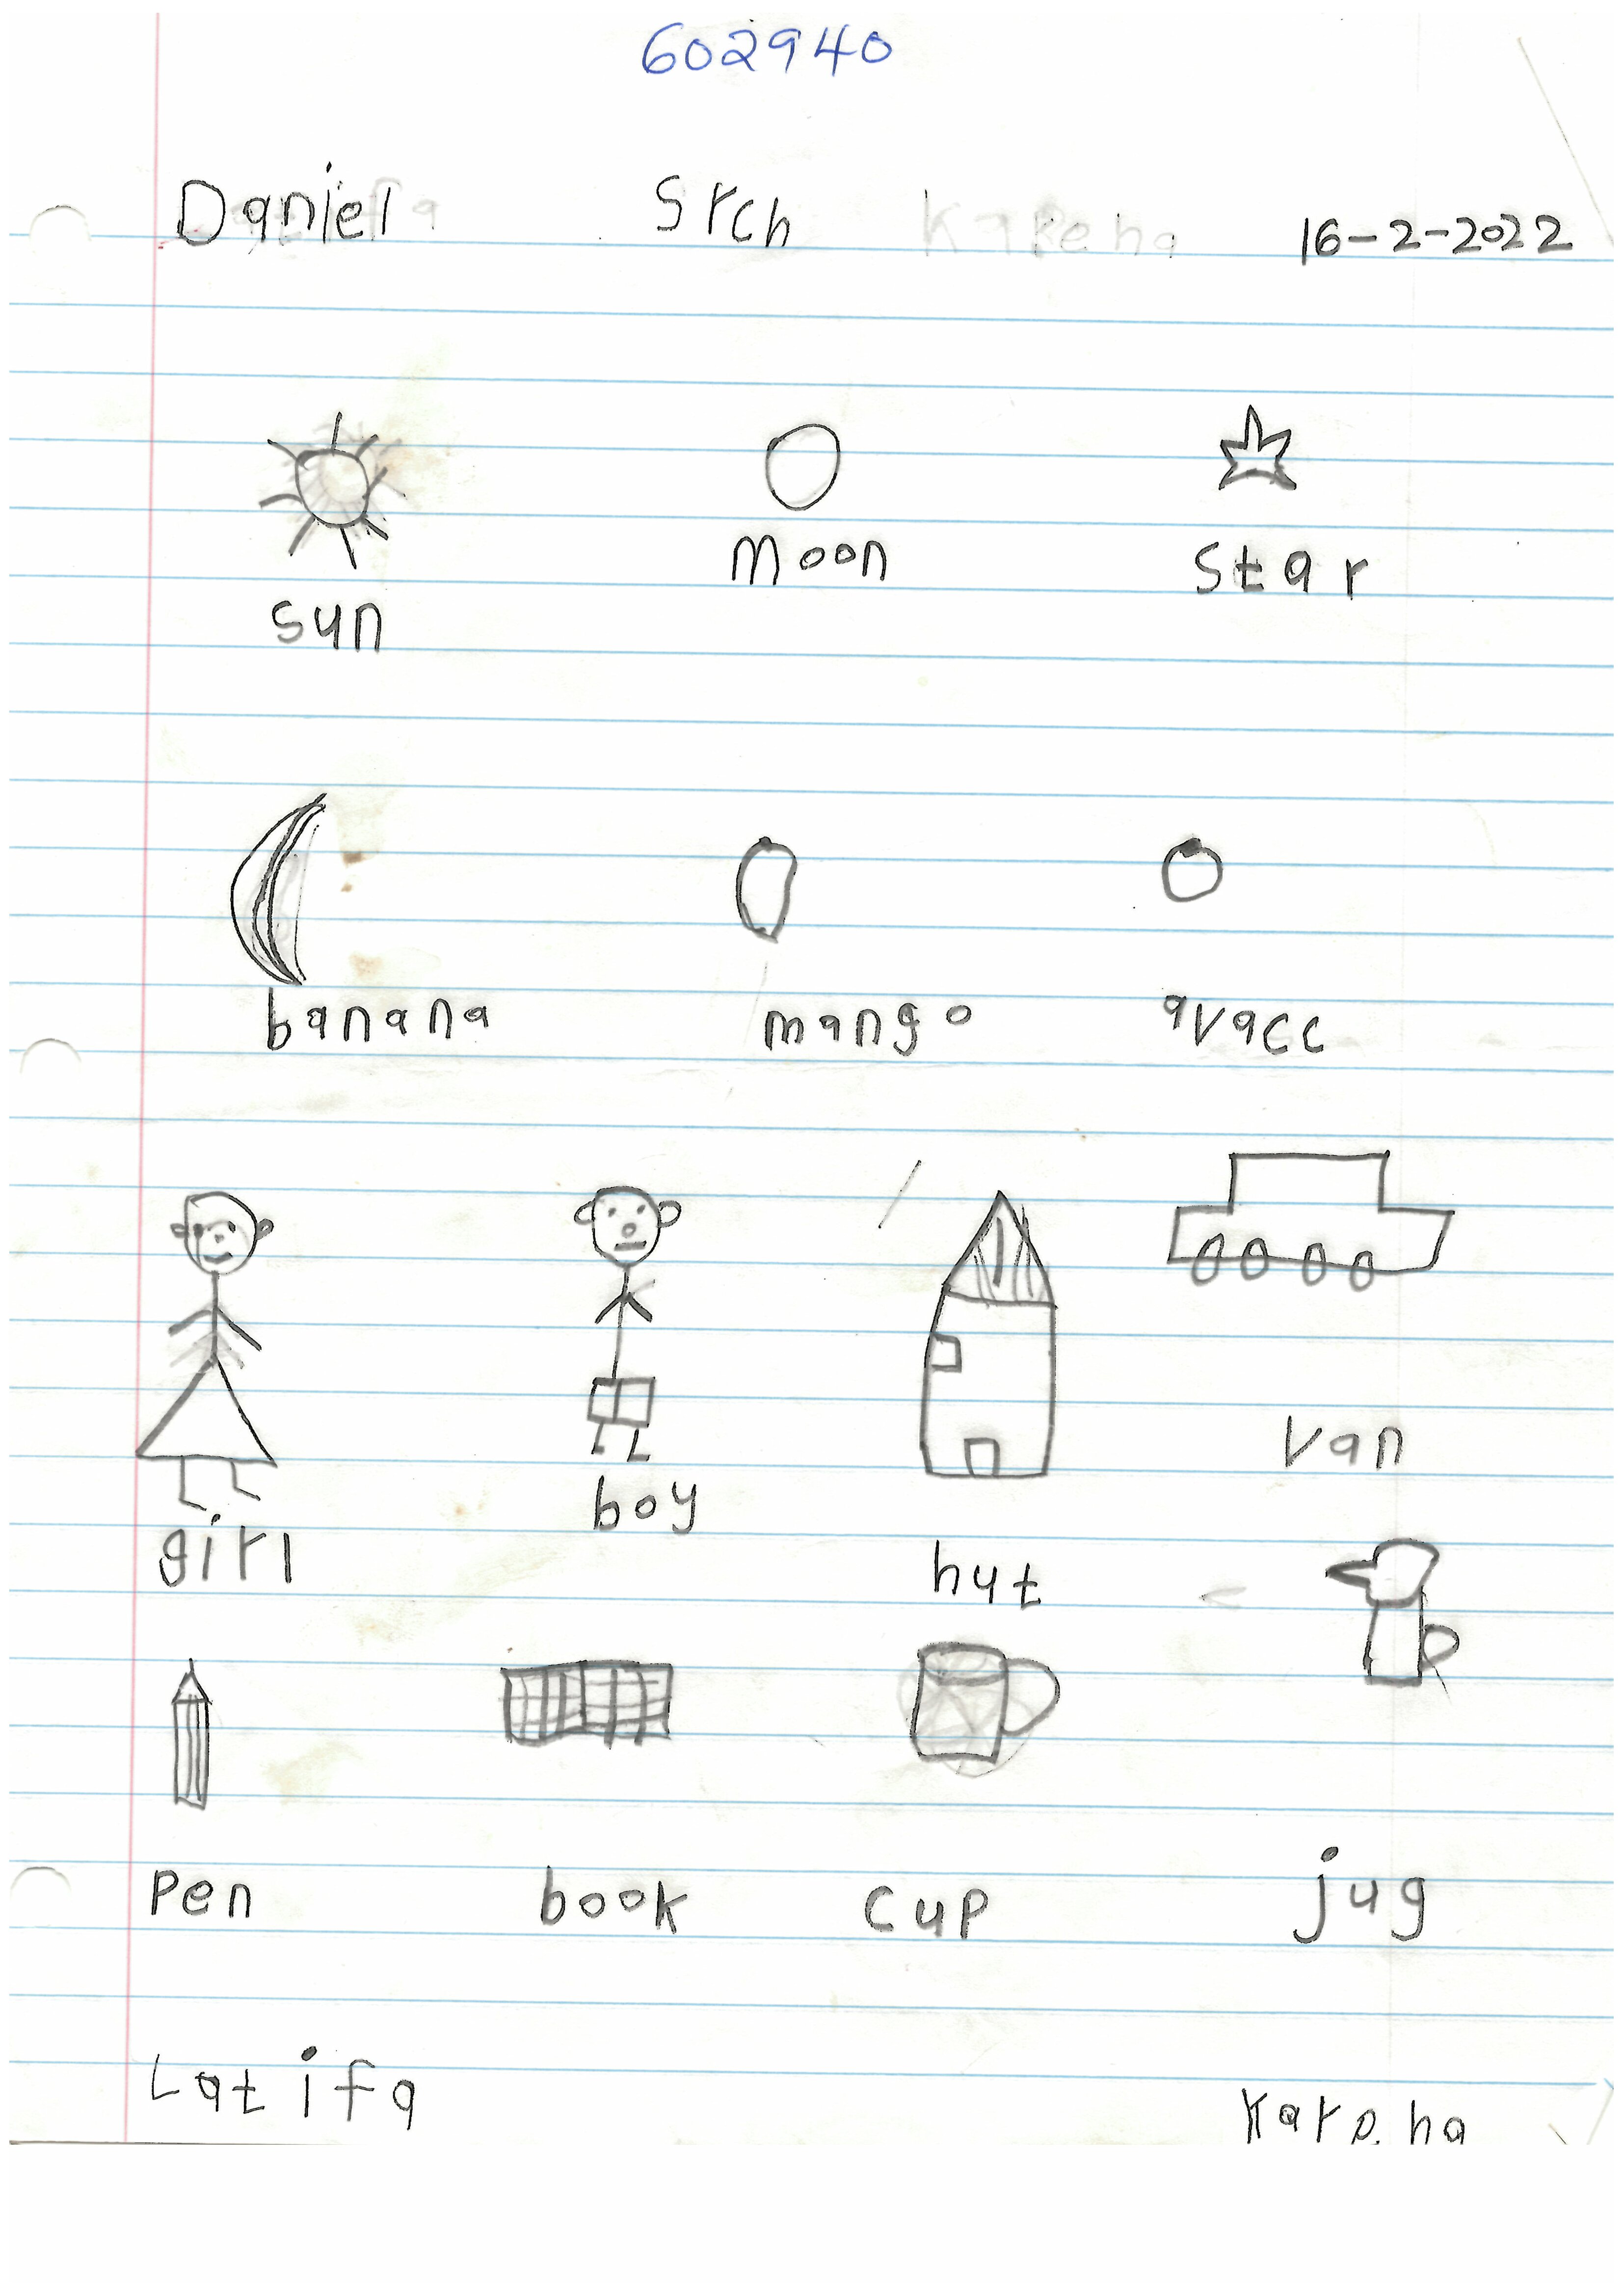 602940
Daniel Srch Kareha 16-2-2022
sun moon star
banana mango avacc
girl boy hut van
pen book cup jug
Latifa Kareha